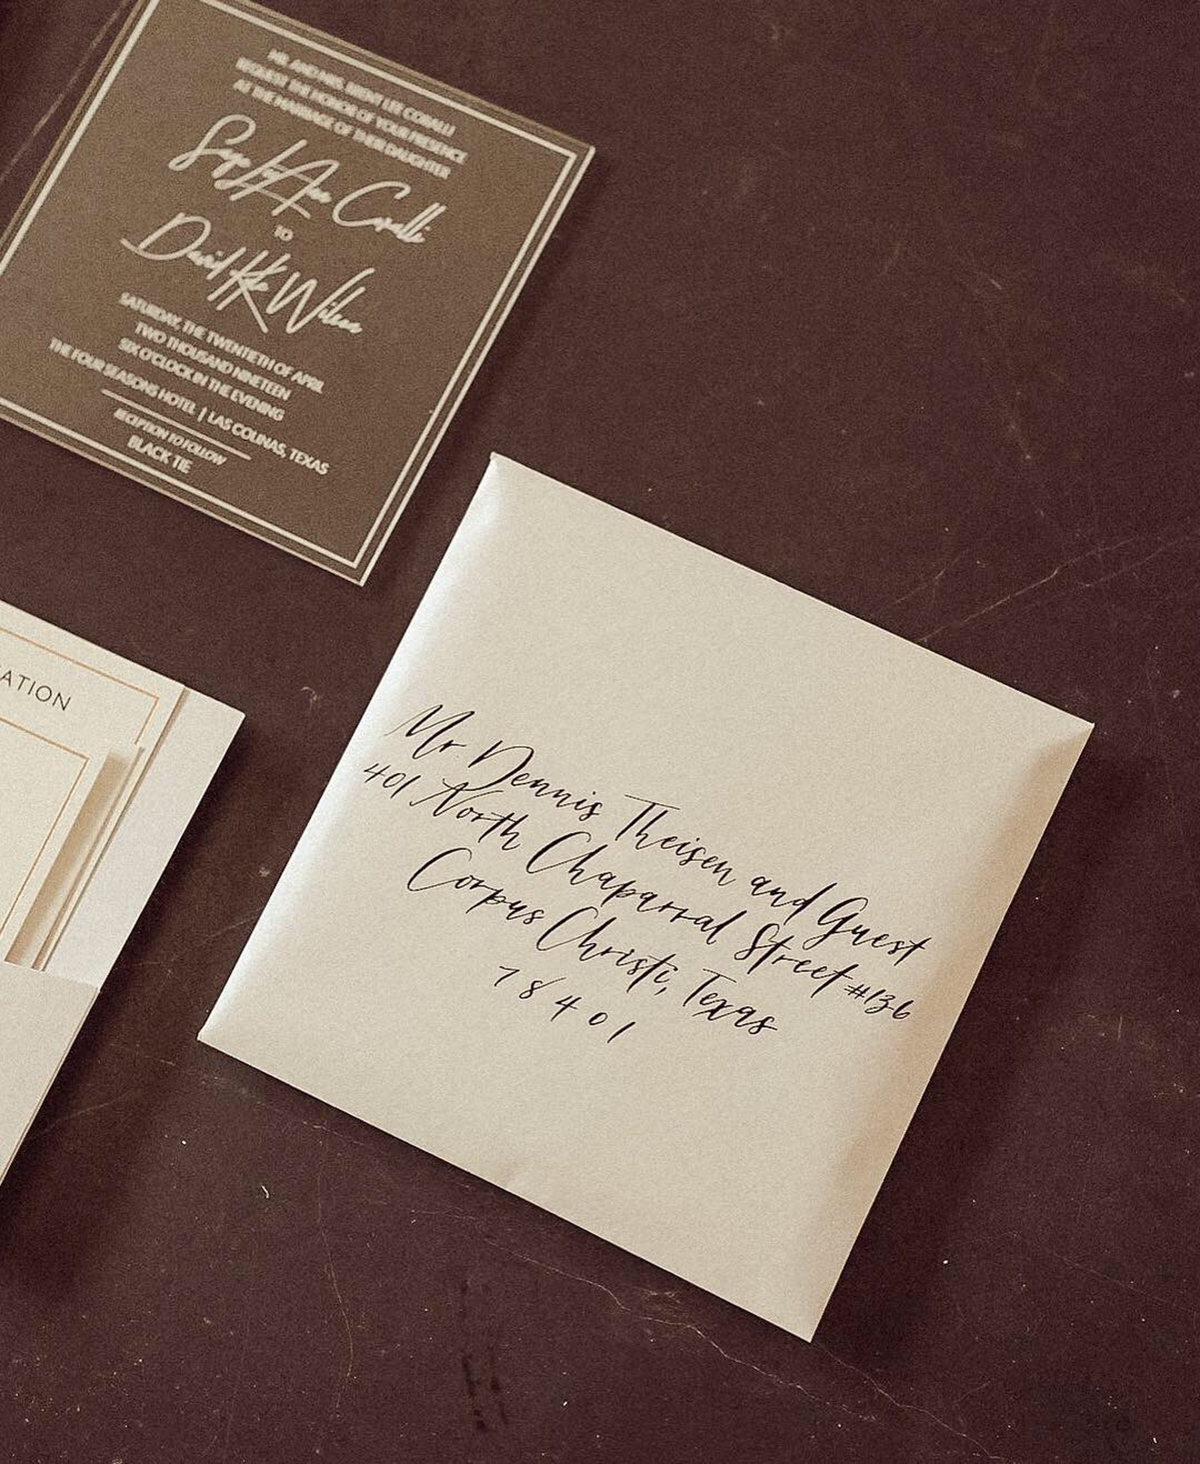 MR. AND MRS. BRENT LEE CORALLI
REQUEST THE HONOR OF YOUR PRESENCE
AT THE MARRIAGE OF THEIR DAUGHTER
Coralli
TO
David Kyle Wilson
SATURDAY, THE TWENTIETH OF APRIL
TWO THOUSAND NINETEEN
SIX O'CLOCK IN THE EVENING
THE FOUR SEASONS HOTEL | LAS COLINAS, TEXAS
RECEPTION TO FOLLOW
BLACK TIE
ATION
Mr Dennis Theisen and Guest
401 North Chaparral Street #136
Corpus Christi, Texas
78401